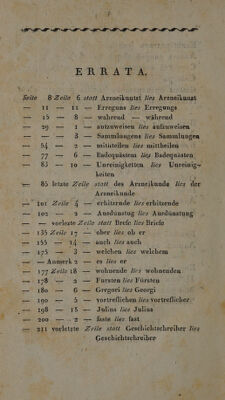 ERRATA.
Seite 8 Zeile 6 statt Arzneikuntst lies Arzneikunst
— 11 — 11 — Erreguns lies Erregungs
— 15 — 8 — wahrend — während
— 29 — 1 — aufzuweisen lies aufzuweisen
— — — 3 — Sammlangens lies Sammlungen
— 54 — 2 — mittiteilen lies mittheilen
— 77 — 6 — Badequästen lies Badequästen
— 83 — 10 — Unreinigketten lies Unreinig-
keiten
— 85 letzte Zeile statt des Arzneikunde lies der
Arzneikunde
— 101 Zeile 4 — erhitzende lies erhitzende
— 102 — 2 — Ausdünstug lies Ausdünstung
— — vorletzte Zeile statt Brefe lies Briefe
— 135 Zeile 17 — ober lies ob er
— 155 — 14 — auch lies auch
— 175 — 3 — welchen lies welchem
— — Anmerk 2 — es lies er
— 177 Zeile 18 — wohnende lies wohnenden
— 178 — 2 — Fursten lies Fürsten
— 180 — 6 — Gregori lies Georgi
— 190 — 5 — vortreflichen lies vortreflicher
— 198 — 18 — Julins lies Julius
— 200 — 2 — faste lies fast
— 211 vorletzte Zeile statt Geschichtschreiber lies
Geschichtschreiber